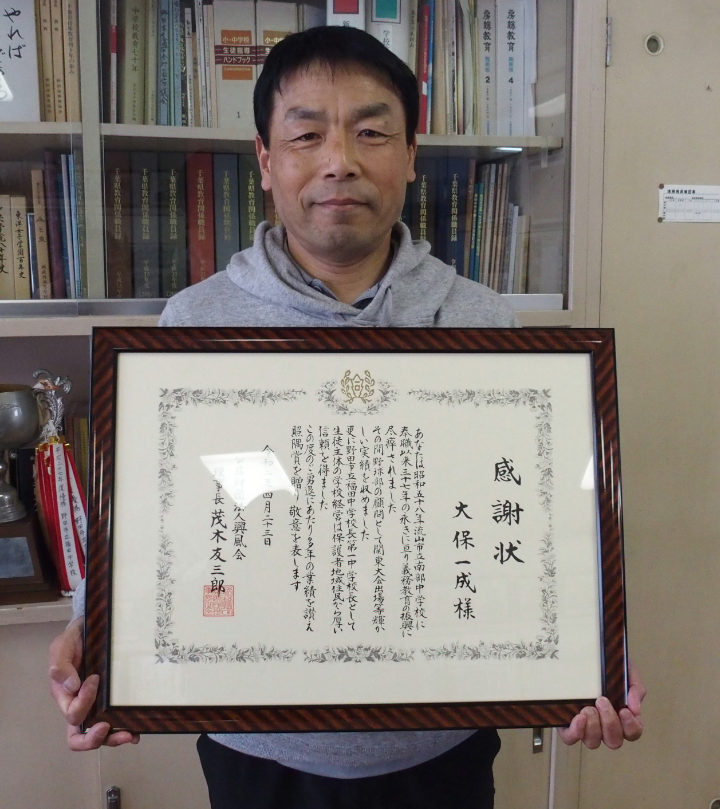 感謝状
大保一成様
あなたは昭和五十八年流山市立南部中学校に
奉職以来三十二年の永きに亘り義務教育の振興に
尽瘁されました
その間野球部の顧問として関東大会出場等輝か
しい実績を収めました
更に野田市立福田中学校長第一中学校長として
生徒主体の学校経営は保護者地域住民から厚い
信頼を得ました
この度のご勇退にあたり多年の業績を讃え
照隅賞を贈り敬意を表します
四月二十三日
法人興風会
事長 茂木友三郎
やれば
小・中学校
生徒指導
ハンドブック
1
房総教育
2
房総教育
4
千葉県教育関係職員録
千葉県教育関係職員録
千葉県教育関係職員録
千葉県教育関係職員録
千葉県教育関係職員録
千葉県教育関係職員録
千葉県教育関係職員録